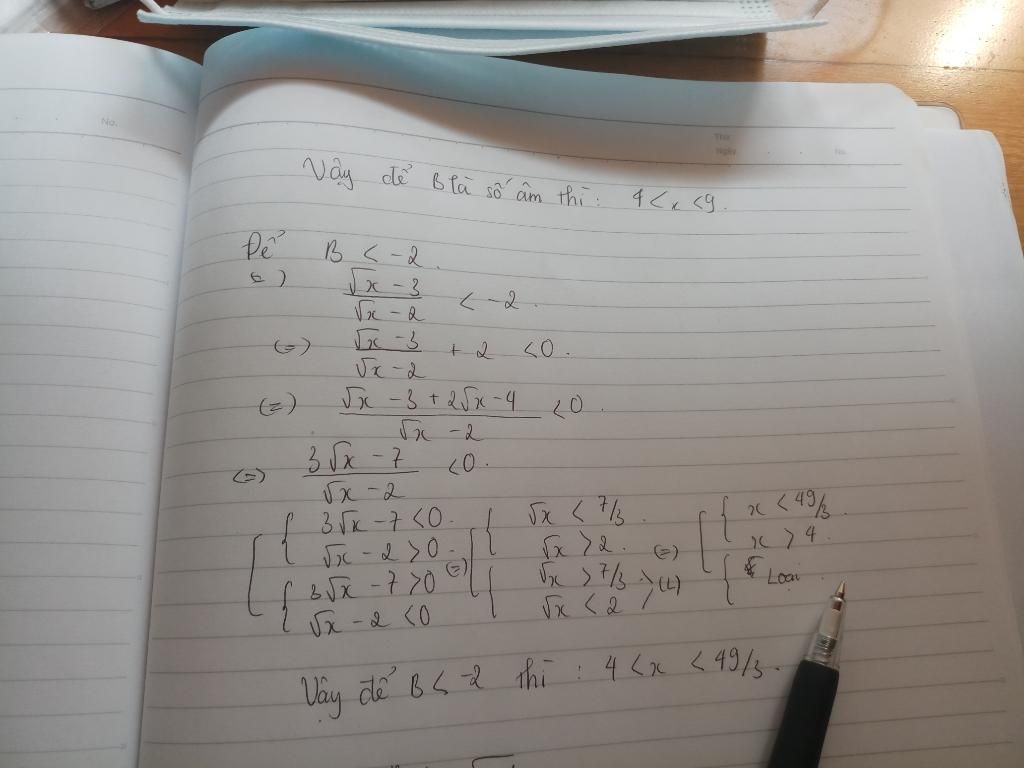 No.
Thứ
Ngày No.
Vậy để B là số âm thì: 4 < x < 9.
Để B < -2.
(=) (√x - 3)/(√x - 2) < -2.
(=) (√x - 3)/(√x - 2) + 2 < 0.
(=) (√x - 3 + 2√x - 4)/(√x - 2) < 0.
(=) (3√x - 7)/(√x - 2) < 0.
[ { 3√x - 7 < 0. [ { √x < 7/3. [ { x < 49/3.
√x - 2 > 0. (=) √x > 2. (=) x > 4.
{ 3√x - 7 > 0 { √x > 7/3 > (L) { Loại.
√x - 2 < 0 √x < 2
Vậy để B < -2 thì: 4 < x < 49/3.